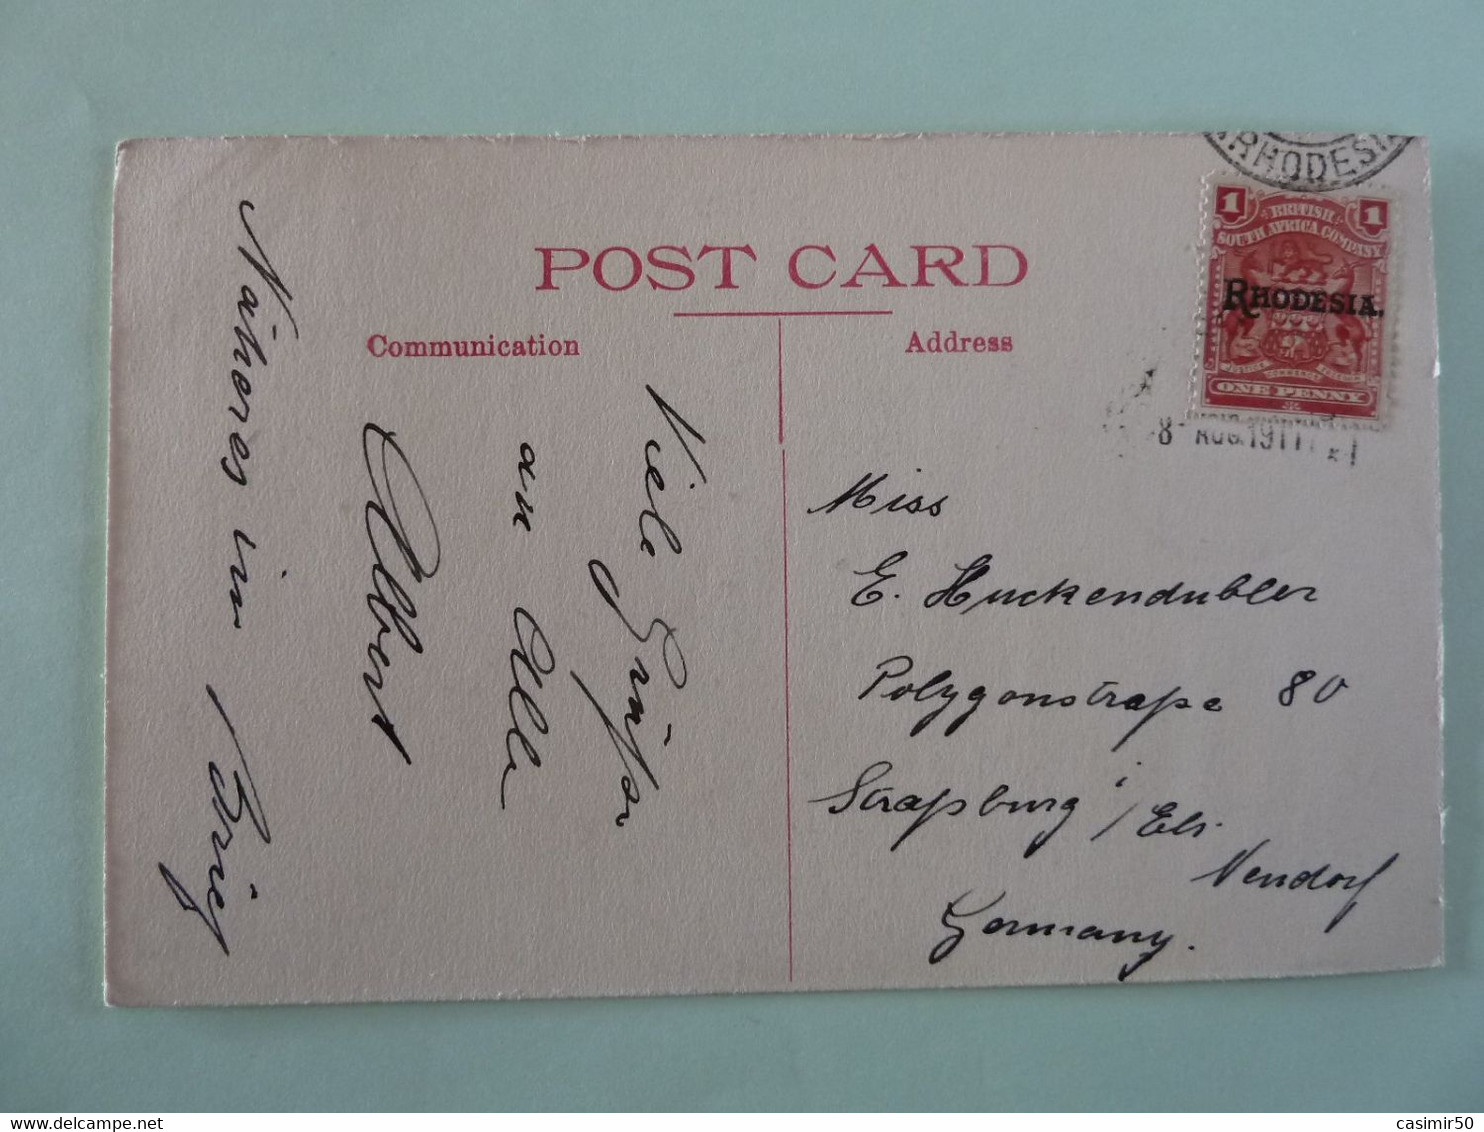 POST CARD
Communication
Address
RHODESIA
1 1
BRITISH
SOUTH AFRICA COMPANY
RHODESIA.
JUSTICE COMMERCE FREEDOM
ONE PENNY
8 AUG 1911
Viele Grüße
an Alle
Albert
Näheres im Brief
Miss
E. Huckendubler
Polygonstraße 80
Straßburg i/Els.
Neudorf
Germany.
casimir50